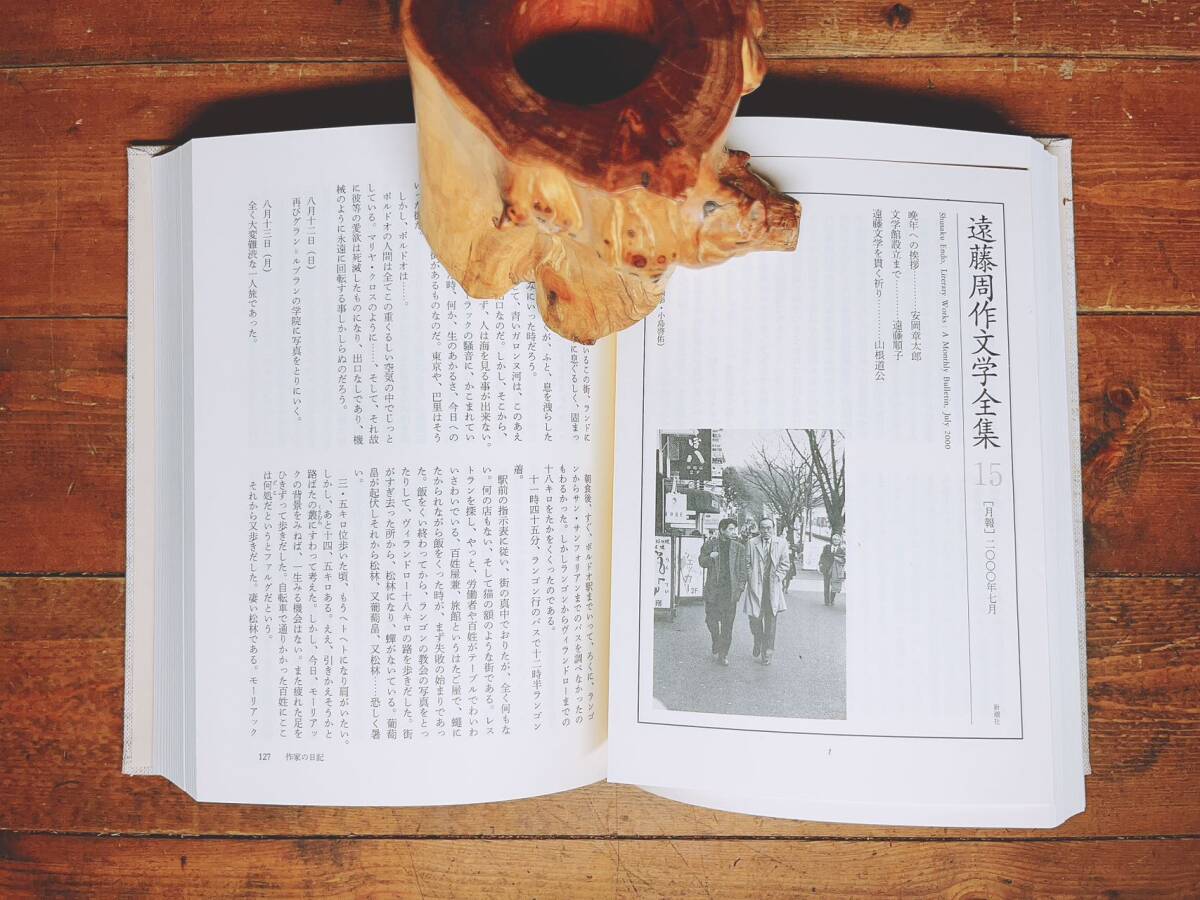 遠藤周作文学全集
15
［月報］二〇〇〇年七月
新潮社
Shusaku Endo, Literary Works : A Monthly Bulletin, July 2000
晩年への挨拶………安岡章太郎
文学館設立まで………遠藤順子
遠藤文学を貫く祈り………山根道公
・小島啓佑）
1
みにいった時だろう。
て、青いガロンヌ河は、このあえ
口なのだ。しかし、そこから、
ず、人は海を見る事が出来ない。
ラックの騒音に、かこまれてい
時、何か、生のあかるさ、今日への
があるものなのだ。東京や、巴里はそう
いった街だ。
しかし、ボルドオは……。
ボルドオの人間は全てこの重くるしい空気の中でじっと
している。マリヤ・クロスのように……、そして、それ故
に彼等の愛欲は死滅したものになり、出口なしであり、機
械のように永遠に回転する事しかしらぬのだろう。
八月十二日（日）
再びグラン＝ルブランの学院に写真をとりにいく。
八月十三日（月）
全く大変難渋な一人旅であった。
朝食後、すぐ、ボルドオ駅までいって、ろくに、ランゴ
ンからサン・サンフォリアンまでのバスを調べなかったの
もわるかった。しかしランゴンからヴィランドローまでの
十八キロをたかをくくったのである。
十一時四十五分、ランゴン行のバスで十二時半ランゴン
着。
駅前の指示表に従い、街の真中でおりたが、全く何もな
い。何の店もない、そして猫の額のような街である。レス
トランを探し、やっと、労働者や百姓がテーブルでわいわ
いさわいでいる、百姓屋兼、旅館というはたご屋で、蠅に
たかられながら飯をくった時が、まず失敗の始まりであっ
た。飯をくい終わってから、ランゴンの教会の写真をとっ
たりして、ヴィランドロー十八キロの路を歩きだした。街
がすぎ去った所から、松林になり、蟬がないている。葡萄
畠が起伏しそれから松林、又葡萄畠、又松林……恐しく暑
い。
三・五キロ位歩いた頃、もうヘトヘトになり肩がいたい。
しかし、あと十四、五キロある。ええ、引きかえそうかと
路ばたの叢にすわって考えた。しかし、今日、モーリアッ
クの背景をみねば、一生みる機会はない。また疲れた足を
ひきずって歩きだした。自転車で通りかかった百姓にここ
は何処だというとファルグだという。
それから又歩きだした。凄い松林である。モーリアック
127 作家の日記